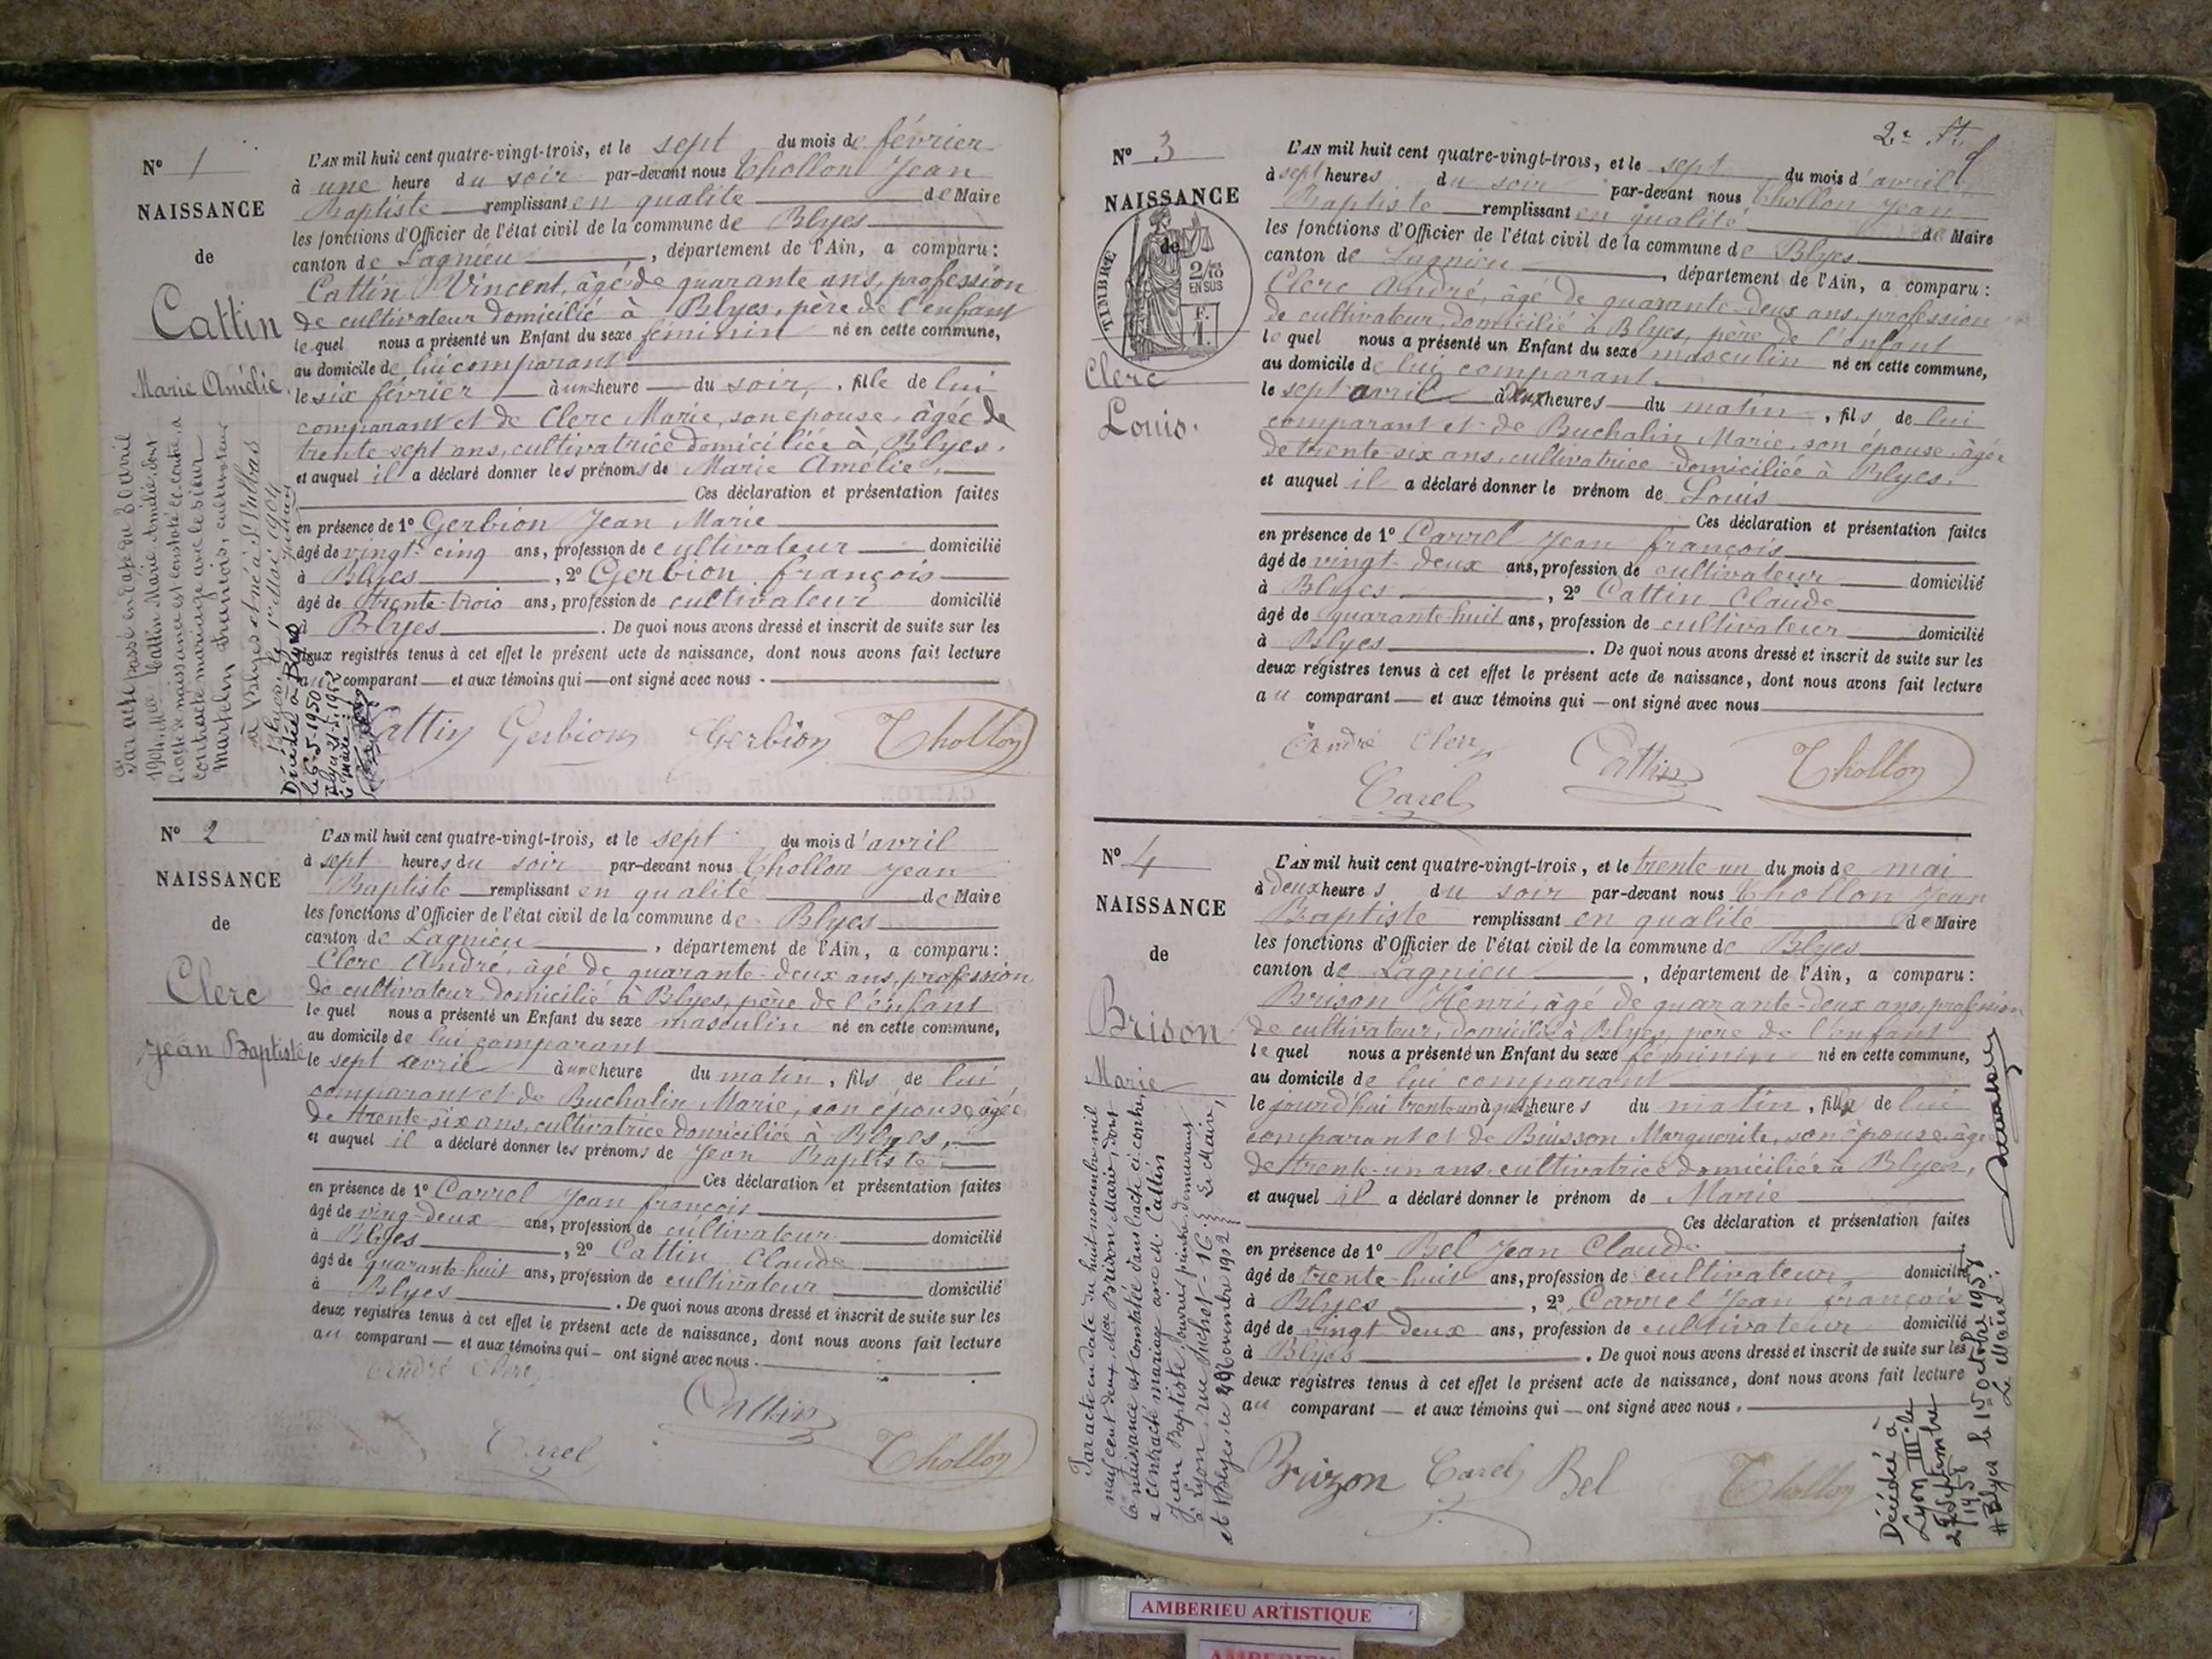 N° 1
NAISSANCE
de
Cattin
Marie Amélie.
L'AN mil huit cent quatre-vingt-trois, et le sept du mois de février
à une heure du soir par-devant nous Chollon Jean
Baptiste remplissant en qualité de Maire
les fonctions d'Officier de l'état civil de la commune de Blyes
canton de Lagnieu, département de l'Ain, a comparu:
Cattin Vincent, âgé de quarante ans, profession
de cultivateur domicilié à Blyes, père de l'enfant
lequel nous a présenté un Enfant du sexe féminin né en cette commune,
au domicile de lui comparant
le six février à une heure du soir, fille de lui
comparant et de Clerc Marie, son épouse, âgée de
trente-sept ans, cultivatrice domiciliée à Blyes,
et auquel il a déclaré donner les prénoms de Marie Amélie
Ces déclaration et présentation faites
en présence de 1° Gerbion Jean Marie
âgé de vingt-cinq ans, profession de cultivateur domicilié
à Blyes, 2° Gerbion françois
âgé de trente-trois ans, profession de cultivateur domicilié
à Blyes. De quoi nous avons dressé et inscrit de suite sur les
deux registres tenus à cet effet le présent acte de naissance, dont nous avons fait lecture
au comparant et aux témoins qui ont signé avec nous.
Cattin Gerbion Gerbion Thollon
Par acte passé en date du 30 avril
1904, Mlle Cattin Marie Amélie, dont
l'acte de naissance est constaté ci-contre, a
contracté mariage avec le sieur
Martelin François, cultivateur
à Blyes et né à St Vulbas
Blyes, le 1er Mai 1904
Décédée à Blyes
le 6-5-1950
Blyes 21-5-1952
le maire
N° 2
NAISSANCE
de
Clerc
Jean Baptiste
L'AN mil huit cent quatre-vingt-trois, et le sept du mois d'avril
à sept heures du soir par-devant nous Chollon Jean
Baptiste remplissant en qualité de Maire
les fonctions d'Officier de l'état civil de la commune de Blyes
canton de Lagnieu, département de l'Ain, a comparu:
Clerc André, âgé de quarante-deux ans, profession
de cultivateur domicilié à Blyes, père de l'enfant
lequel nous a présenté un Enfant du sexe masculin né en cette commune,
au domicile de lui comparant
le sept avril à une heure du matin, fils de lui
comparant et de Buchalin Marie, son épouse, âgée
de trente-six ans, cultivatrice domiciliée à Blyes,
et auquel il a déclaré donner les prénoms de Jean Baptiste
Ces déclaration et présentation faites
en présence de 1° Carrel Jean françois
âgé de ving-deux ans, profession de cultivateur domicilié
à Blyes, 2° Cattin Claude
âgé de quarante-huit ans, profession de cultivateur domicilié
à Blyes. De quoi nous avons dressé et inscrit de suite sur les
deux registres tenus à cet effet le présent acte de naissance, dont nous avons fait lecture
au comparant et aux témoins qui ont signé avec nous.
André Clerc
Cattin
Carel Thollon
2e
N° 3
NAISSANCE
de
TIMBRE
2/10
EN SUS
F.
1.
Clerc
Louis.
L'AN mil huit cent quatre-vingt-trois, et le sept du mois d'avril
à sept heures du soir par-devant nous Chollon Jean
Baptiste remplissant en qualité de Maire
les fonctions d'Officier de l'état civil de la commune de Blyes
canton de Lagnieu, département de l'Ain, a comparu:
Clerc André, âgé de quarante-deux ans, profession
de cultivateur, domicilié à Blyes, père de l'enfant
lequel nous a présenté un Enfant du sexe masculin né en cette commune,
au domicile de lui comparant
le sept avril à deux heures du matin, fils de lui
comparant et de Buchalin Marie, son épouse, âgée
de trente-six ans, cultivatrice domiciliée à Blyes.
et auquel il a déclaré donner le prénom de Louis
Ces déclaration et présentation faites
en présence de 1° Carrel Jean françois
âgé de vingt-deux ans, profession de cultivateur domicilié
à Blyes, 2° Cattin Claude
âgé de quarante-huit ans, profession de cultivateur domicilié
à Blyes. De quoi nous avons dressé et inscrit de suite sur les
deux registres tenus à cet effet le présent acte de naissance, dont nous avons fait lecture
au comparant et aux témoins qui ont signé avec nous
André Clerc Cattin Thollon
Carel
N° 4
NAISSANCE
de
Brison
Marie
L'AN mil huit cent quatre-vingt-trois, et le trente un du mois de mai
à deux heures du soir par-devant nous Chollon Jean
Baptiste remplissant en qualité de Maire
les fonctions d'Officier de l'état civil de la commune de Blyes
canton de Lagnieu, département de l'Ain, a comparu:
Brison Henri, âgé de quarante-deux ans, profession
de cultivateur, domicilié à Blyes, père de l'enfant
lequel nous a présenté un Enfant du sexe féminin né en cette commune,
au domicile de lui comparant
le jourd'hui trente un à heures du matin, fille de lui
comparant et de Buisson Marguerite, son épouse, âgée
de trente-un ans, cultivatrice domiciliée à Blyes,
et auquel il a déclaré donner le prénom de Marie
Ces déclaration et présentation faites
en présence de 1° Bel Jean Claude
âgé de trente-huit ans, profession de cultivateur domicilié
à Blyes, 2° Carrel Jean françois
âgé de vingt deux ans, profession de cultivateur domicilié
à Blyes. De quoi nous avons dressé et inscrit de suite sur les
deux registres tenus à cet effet le présent acte de naissance, dont nous avons fait lecture
au comparant et aux témoins qui ont signé avec nous.
Brizon Carel Bel Thollon
Par acte en date du huit novembre mil
neuf cent deux, Mlle Brison Marie, dont
la naissance est constatée dans l'acte ci-contre,
a contracté mariage avec M. Cattin
Jean Baptiste, ouvrier peintre demeurant
à Lyon, rue 16. Le Maire,
et Blyes, le Novembre 1902
Décédée à
Lyon III le
Septembre
1957
Blyes le 15 octobre 1957
Le Maire:
AMBERIEU ARTISTIQUE
AMBERIEU